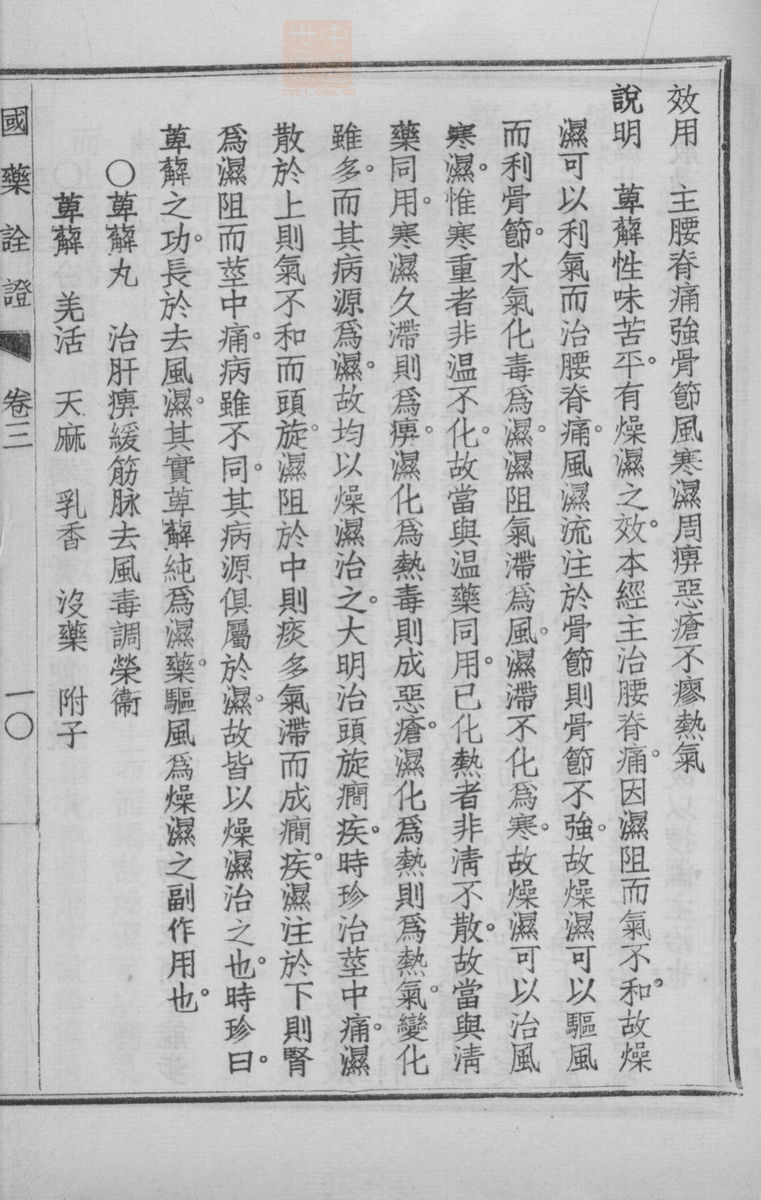 效用　主腰脊痛強骨節風寒濕周痹惡瘡不瘳熱氣
說明　萆薢性味苦平。有燥濕之效。本經主治腰脊痛。因濕阻而氣不和。故燥
濕可以利氣而治腰脊痛。風濕流注於骨節則骨節不強。故燥濕可以驅風
而利骨節。水氣化毒爲濕。濕阻氣滯爲風。濕滯不化爲寒。故燥濕可以治風
寒濕。惟寒重者非温不化。故當與温藥同用。已化熱者非淸不散。故當與淸
藥同用。寒濕久滯則爲痹。濕化爲熱毒則成惡瘡。濕化爲熱則爲熱氣。變化
雖多。而其病源爲濕。故均以燥濕治之。大明治頭旋癇疾。時珍治莖中痛。濕
散於上則氣不和而頭旋。濕阻於中則痰多氣滯而成癇疾。濕注於下則腎
爲濕阻而莖中痛。病雖不同。其病源俱屬於濕。故皆以燥濕治之也。時珍曰。
萆薢之功。長於去風濕。其實萆薢純爲濕藥。驅風爲燥濕之副作用也。
○萆薢丸　治肝痹緩筋脉去風毒調榮衞
萆薢　羌活　天麻　乳香　沒藥　附子
國藥詮證　卷三　一○